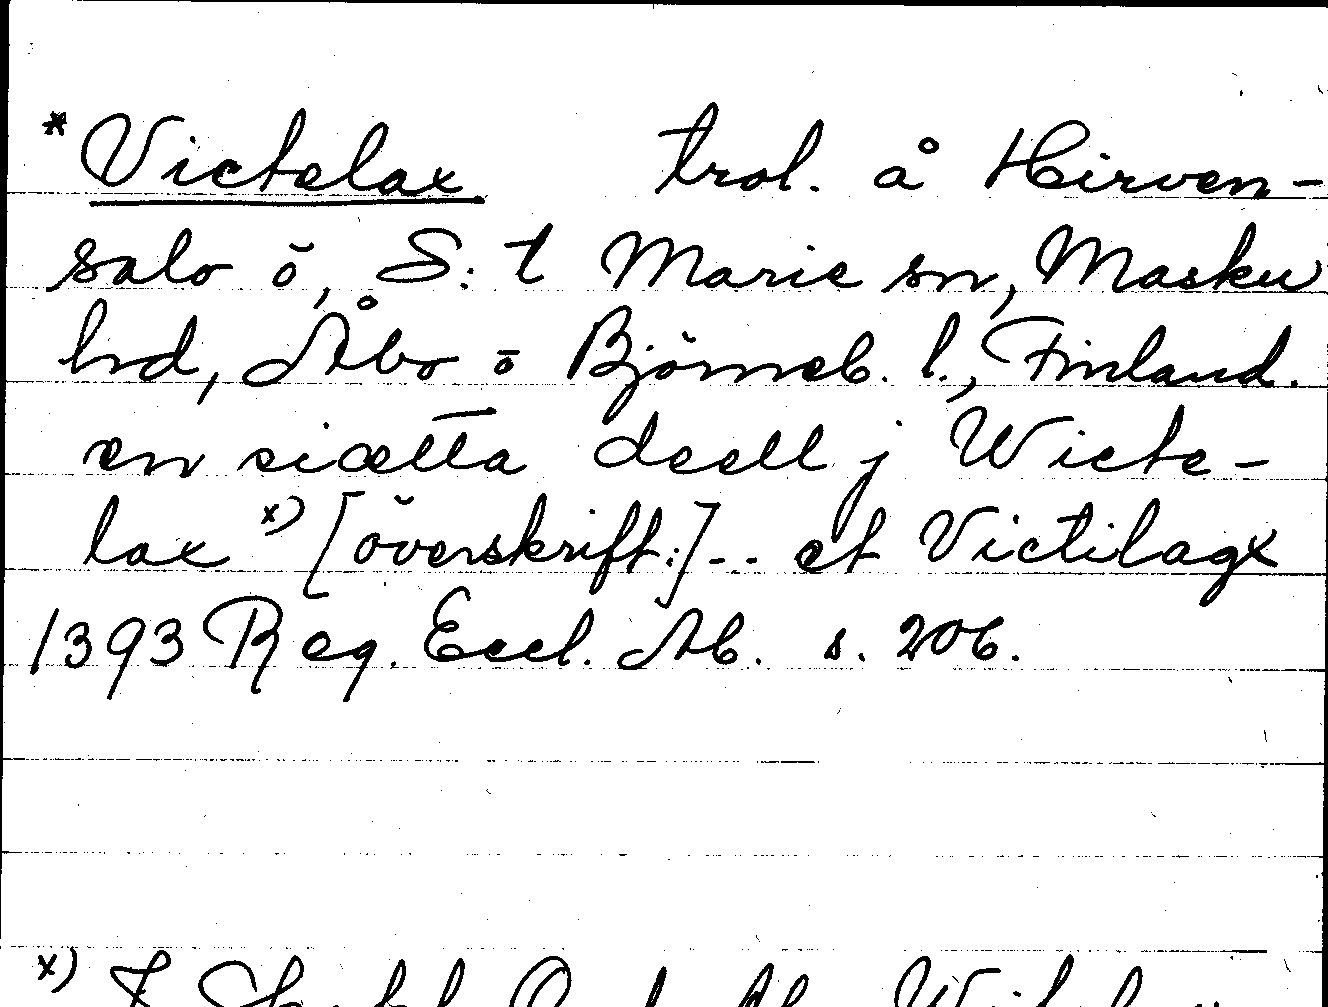 *Victelax trol. å Hirven-
salo ö, S:t Marie sn, Masku
hd, Åbo o Björneb. l., Finland.
en siætta deell j Wicte-
lax x) [överskrift:]-- et Victilagx
1393 Reg. Eccl. Ab. s. 206.
x)